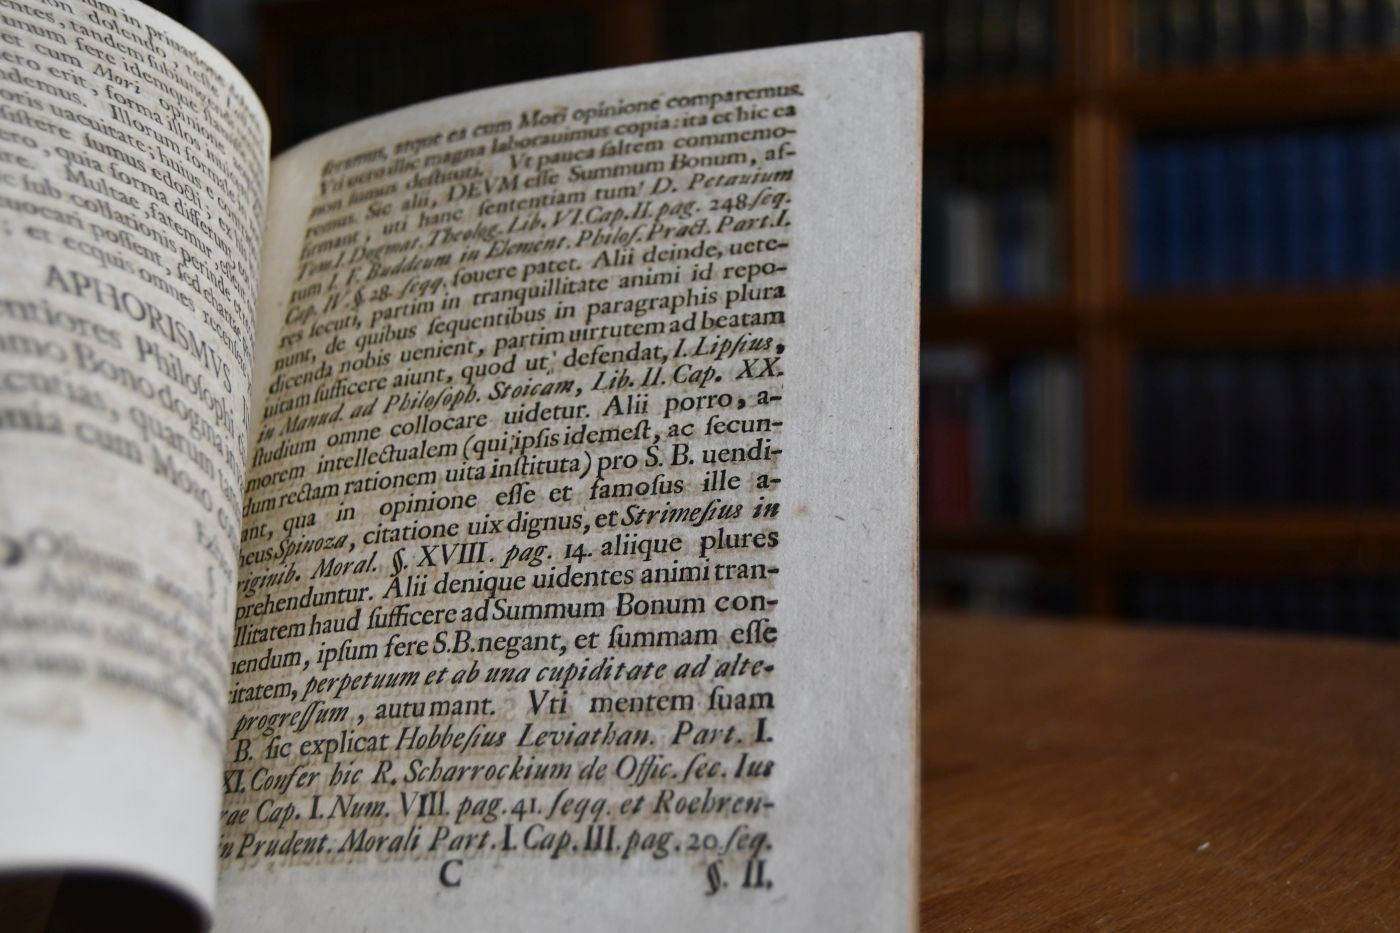 um in priuatione
dolendo, teste
entes, tandem subiungendo
mum fere idemque
et cum Mori opinione
ero erit, forma illos inui
ndemus. Illorum formale in
oris uacuitate; huius e contra
sistere sumus edocti; ex his
ero, quia forma differunt,
re. Multae, fatemur,
sub collationis perinde et
uocari possent, sed chartae
; et ecquis omnes recensere
APHORISMVS
entiores Philosophi,
mo Bono dogma
tentias, quarum
onia cum Moro
feramus, atque ea cum Mori opinione comparemus.
Vti uero illic magna laborauimus copia: ita et hic ea
non sumus destituti. Vt pauca saltem commemo-
remus. Sic alii, DEVM esse Summum Bonum, af-
firmant, uti hanc sententiam tum D. Petauium
Tom. I. Dogmat. Theolog. Lib. VI. Cap. II. pag. 248. seq.
tum I. F. Buddeum in Element. Philos. Pract. Part. I.
Cap. IV. §. 28. seqq. fouere patet. Alii deinde, uete-
res secuti, partim in tranquillitate animi id repo-
nunt, de quibus sequentibus in paragraphis plura
dicenda nobis uenient, partim uirtutem ad beatam
uitam sufficere aiunt, quod ut defendat, I. Lipsius,
in Manud. ad Philosoph. Stoicam, Lib. II. Cap. XX.
studium omne collocare uidetur. Alii porro, a-
morem intellectualem (qui ipsis idem est, ac secun-
dum rectam rationem uita instituta) pro S. B. uendi-
ant, qua in opinione esse et famosus ille a-
heus Spinoza, citatione uix dignus, et Strimesius in
riginib. Moral. §. XVIII. pag. 14. aliique plures
prehenduntur. Alii denique uidentes animi tran-
llitatem haud sufficere ad Summum Bonum con-
uendum, ipsum fere S.B. negant, et summam esse
citatem, perpetuum et ab una cupiditate ad alte-
progressum, autumant. Vti mentem suam
B. sic explicat Hobbesius Leviathan. Part. I.
XI. Confer hic R. Scharrockium de Offic. sec. Ius
rae Cap. I. Num. VIII. pag. 41. seqq. et Roehren-
in Prudent. Morali Part. I. Cap. III. pag. 20 seq.
C §. II,